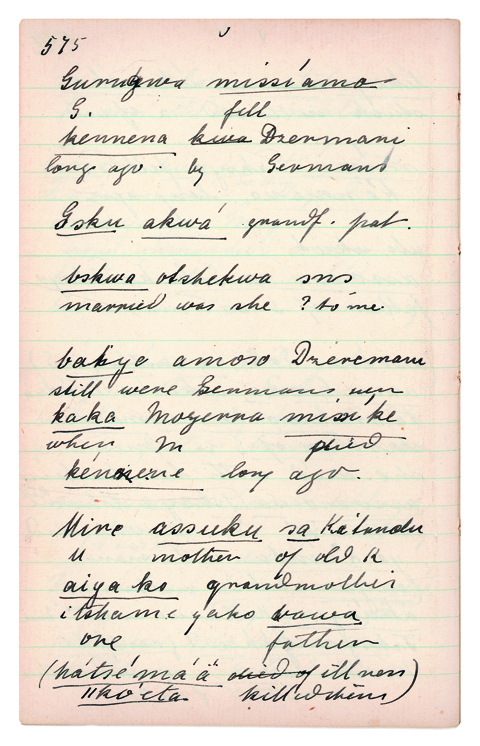 575
Gurugwa missíamo
G. fell
kennena kwa Dzermani
long ago. by Germans
Esku akwá grandf. pat.
bskwa otshekwa sns
married was she ? to me.
bakyo amoso Dzeremani
still were Germans
kaka Moyenna missíke
when M died
kénozerie long ago.
Mire assuku sa Katandu
M mother of old K
aiya ko grandmother
itshame yako bawa
one father
(hátsé má'ä died of illness
"kó'eta killed him)